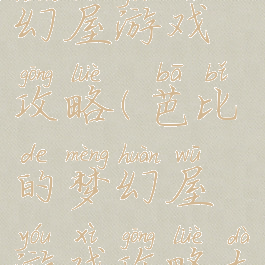 幻屋游戏
gōng lüè bā bǐ
攻略(芭比
de mèng huàn wū
的梦幻屋
yóu xì gōng lüè dà
游戏攻略大